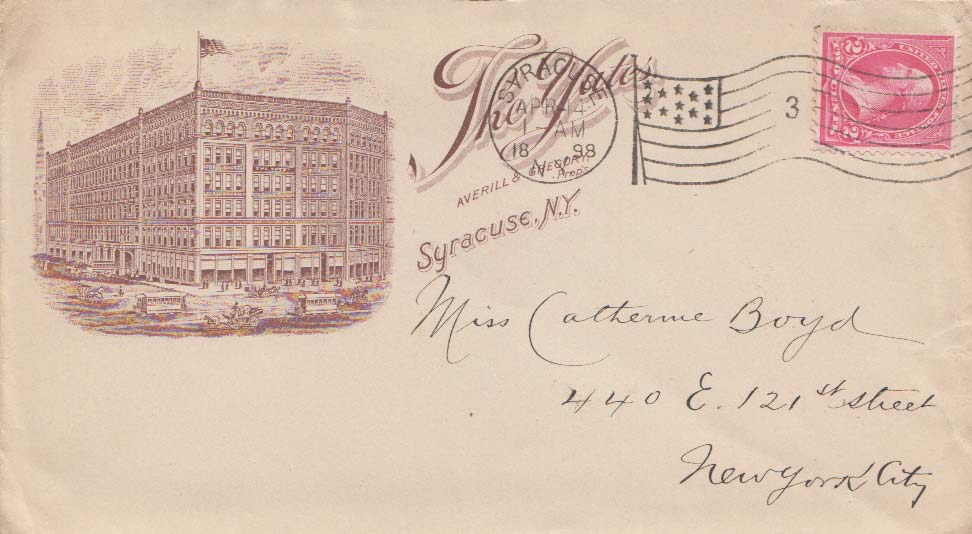 The Yates
AVERILL & GREGORY,
Props.
Syracuse, N.Y.
SYRACUSE
APR 14
1 - AM
18 98
N.Y.
3
2
UNITED STATES
POSTAGE
2
Miss Catherine Boyd
440 E. 121st Street
New York City